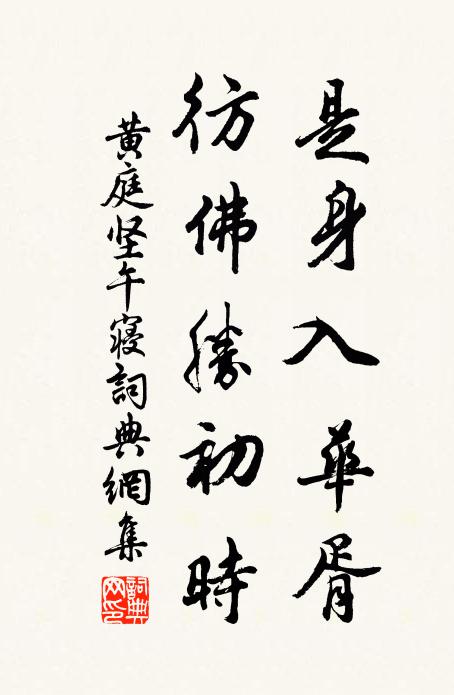 是身入華胥
彷彿勝初時
黃庭坚午寢詞典網集
詞典網印